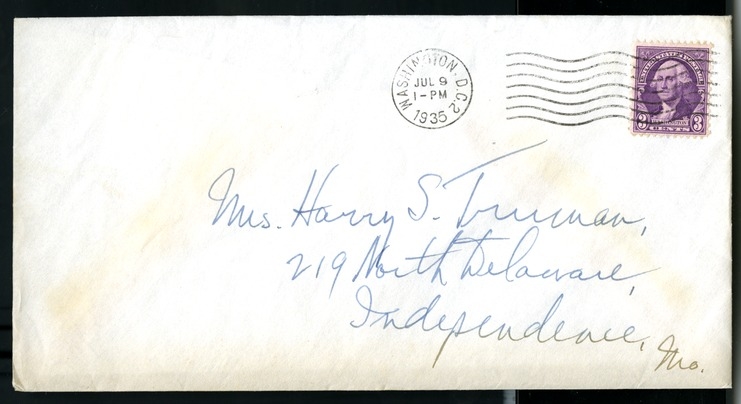 WASHINGTON, D.C. 2
JUL 9
1-PM
1935
UNITED STATES POSTAGE
3 WASHINGTON 3
CENTS
Mrs. Harry S. Truman,
219 North Delaware,
Independence, Mo.